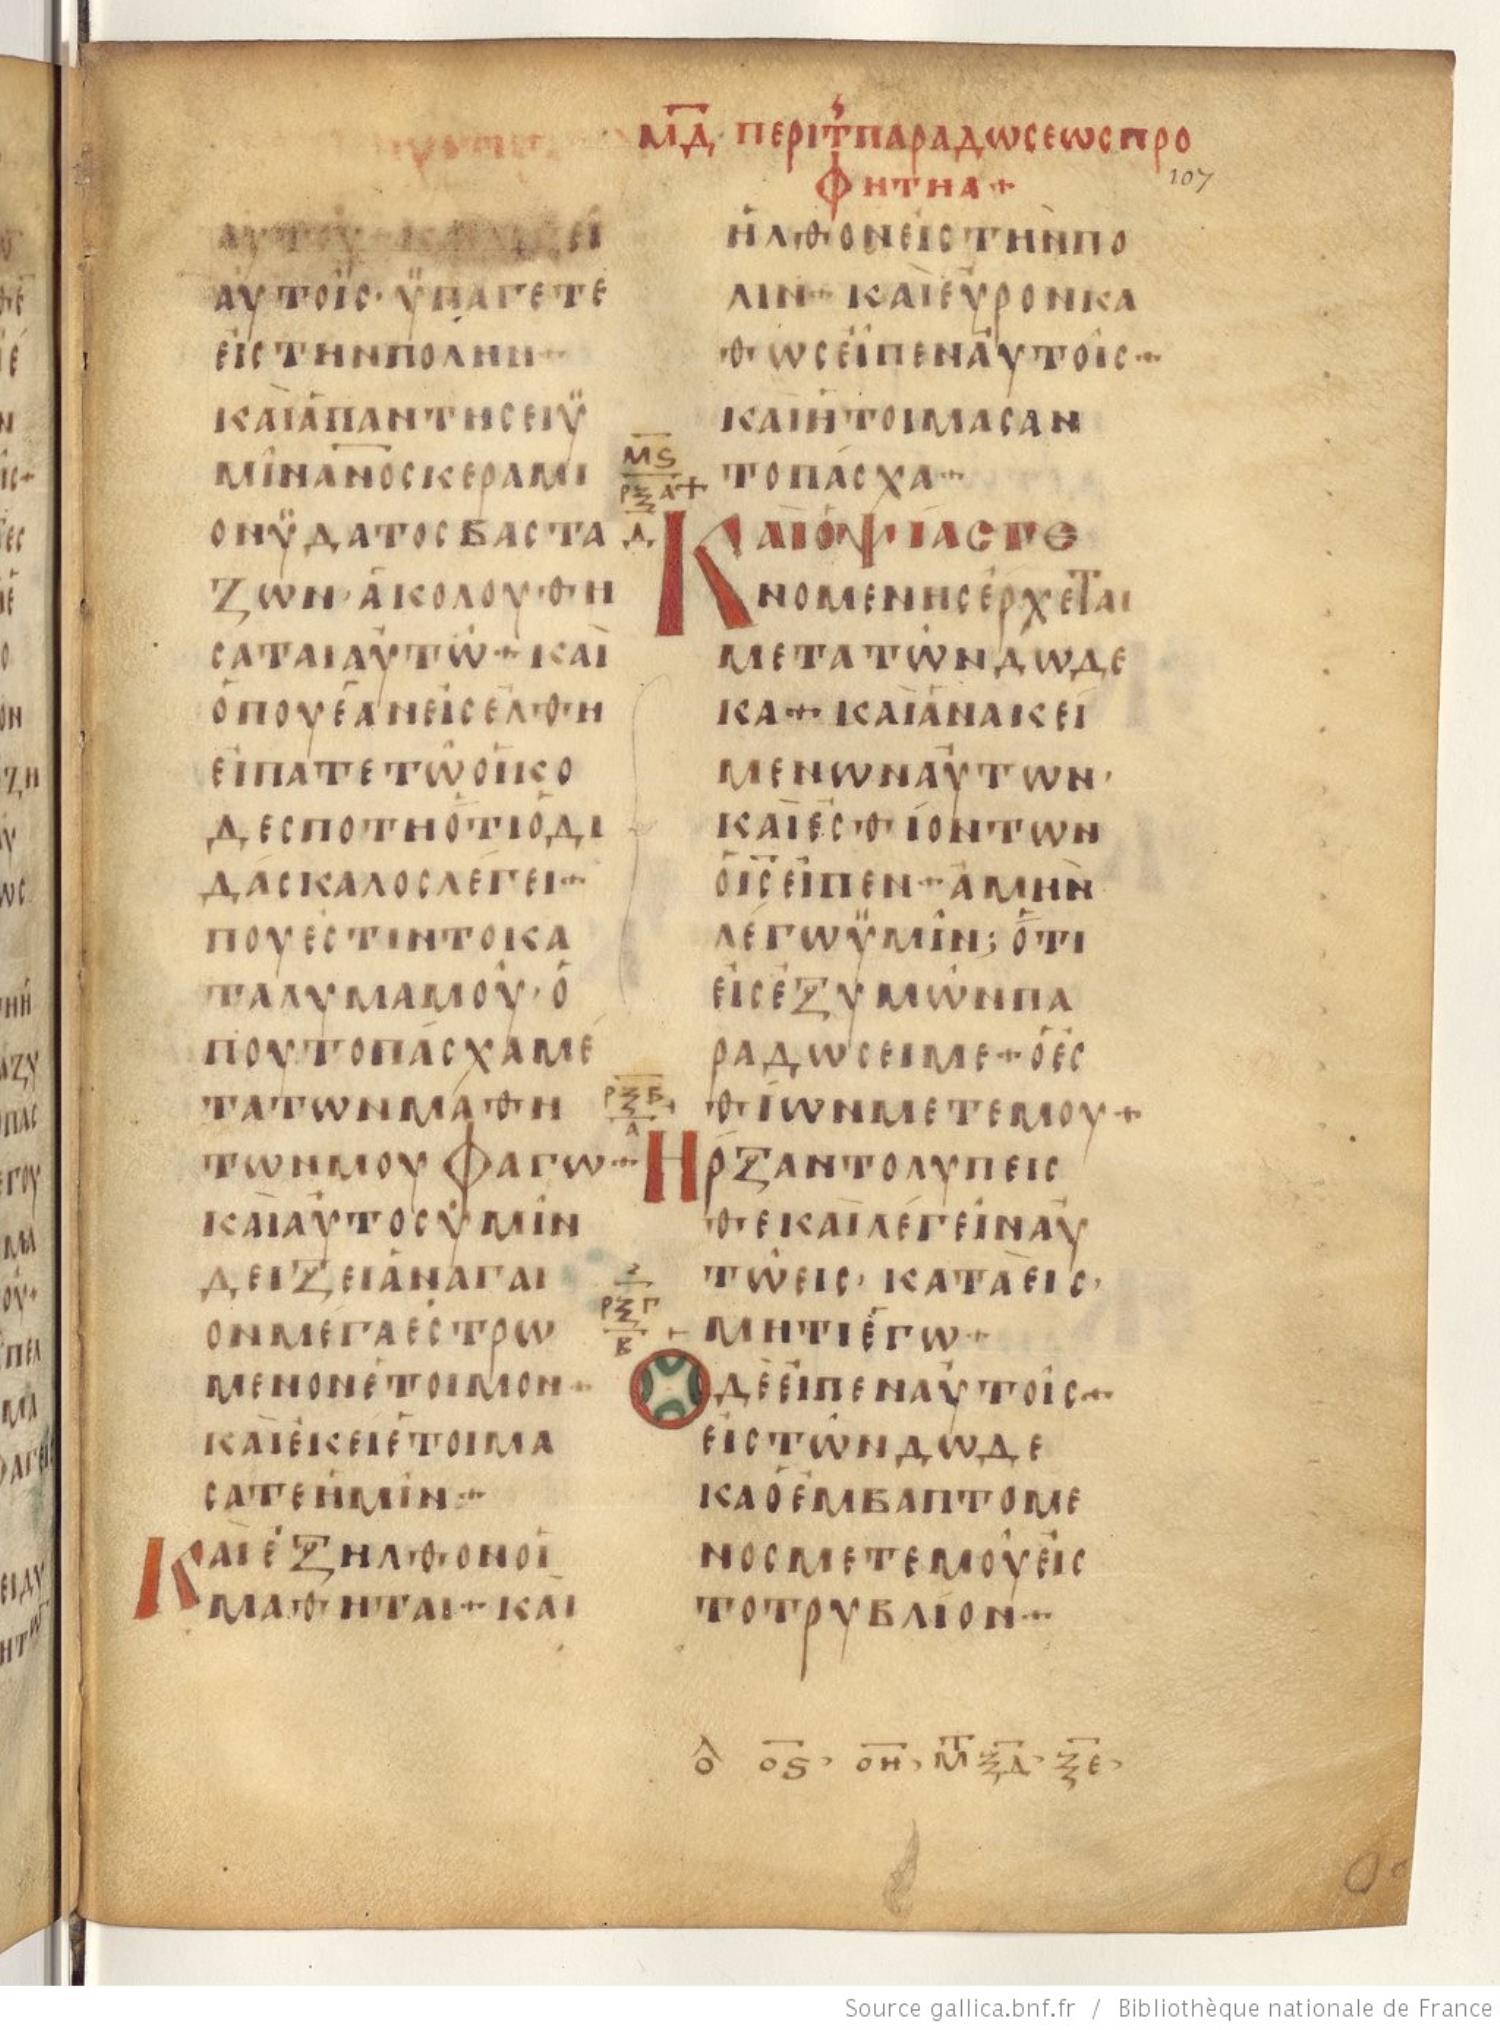 ΜΔ ΠΕΡΙ Τ ΠΑΡΑΔΩСΕΩС ΠΡΟ
ΦΗΤΗΑ+
107
ΑΥΤΟΥ
ΑΥΤΟΙС· ΫΠΑΓΕΤΕ
ΕΙСΤΗΝΠΟΛΗΝ+
ΚΑΙΑΠΑΝΤΗСΕΙΫ
ΜΙΝΑΝΟСΚΕΡΑΜΙ
ΟΝΫΔΑΤΟСΒΑСΤΑ
ΖΩΝ· ΑΚΟΛΟΥΘΗ
СΑΤΑΙΑΥΤΩ+ ΚΑΙ
ΟΠΟΥΕΑΝΕΙСΕΛΘΗ
ΕΙΠΑΤΕΤΩΟΙΚΟ
ΔΕСΠΟΤΗΟΤΙΟΔΙ
ΔΑСΚΑΛΟСΛΕΓΕΙ+
ΠΟΥΕСΤΙΝΤΟΚΑ
ΤΑΛΥΜΑΜΟΥ· Ο
ΠΟΥΤΟΠΑСΧΑΜΕ
ΤΑΤΩΝΜΑΘΗ
ΤΩΝΜΟΥΦΑΓΩ+
ΚΑΙΑΥΤΟСΥΜΙΝ
ΔΕΙΞΕΙΑΝΑΓΑΙ
ΟΝΜΕΓΑΕСΤΡΩ
ΜΕΝΟΝΕΤΟΙΜΟΝ+
ΚΑΙΕΚΕΙΕΤΟΙΜΑ
СΑΤΕΗΜΙΝ+
ΚΑΙΕΞΗΛΘΟΝΟΙ
ΜΑΘΗΤΑΙ+ ΚΑΙ
ΗΛΘΟΝΕΙСΤΗΝΠΟ
ΛΙΝ+ ΚΑΙΕΥΡΟΝΚΑ
ΘΩСΕΙΠΕΝΑΥΤΟΙС+
ΚΑΙΗΤΟΙΜΑСΑΝ
ΤΟΠΑСΧΑ+
ΜS
ΡΞΑ+
Δ
ΚΑΙΟΨΙΑСΓΕ
ΝΟΜΕΝΗСΕΡΧΕΤΑΙ
ΜΕΤΑΤΩΝΔΩΔΕ
ΚΑ+ ΚΑΙΑΝΑΚΕΙ
ΜΕΝΩΝΑΥΤΩΝ·
ΚΑΙΕСΘΙΟΝΤΩΝ
ΟΙСΕΙΠΕΝ+ ΑΜΗΝ
ΛΕΓΩΫΜΙΝ; ΟΤΙ
ΕΙСΕΞΥΜΩΝΠΑ
ΡΑΔΩСΕΙΜΕ+ ΟΕС
ΘΙΩΝΜΕΤΕΜΟΥ+
ΡΞΒ+
Α
ΗΡΞΑΝΤΟΛΥΠΕΙС
ΘΕΚΑΙΛΕΓΕΙΝΑΥ
ΤΩΕΙС· ΚΑΤΑΕΙС·
ΜΗΤΙΕΓΩ+
ΡΞΓ
Β
ΟΔΕΕΙΠΕΝΑΥΤΟΙС+
ΕΙСΤΩΝΔΩΔΕ
ΚΑΟΕΜΒΑΠΤΟΜΕ
ΝΟСΜΕΤΕΜΟΥΕΙС
ΤΟΤΡΥΒΛΙΟΝ+
ΟS· ΟΗ· ΞΔ· ΞΕ·
Source gallica.bnf.fr / Bibliothèque nationale de France